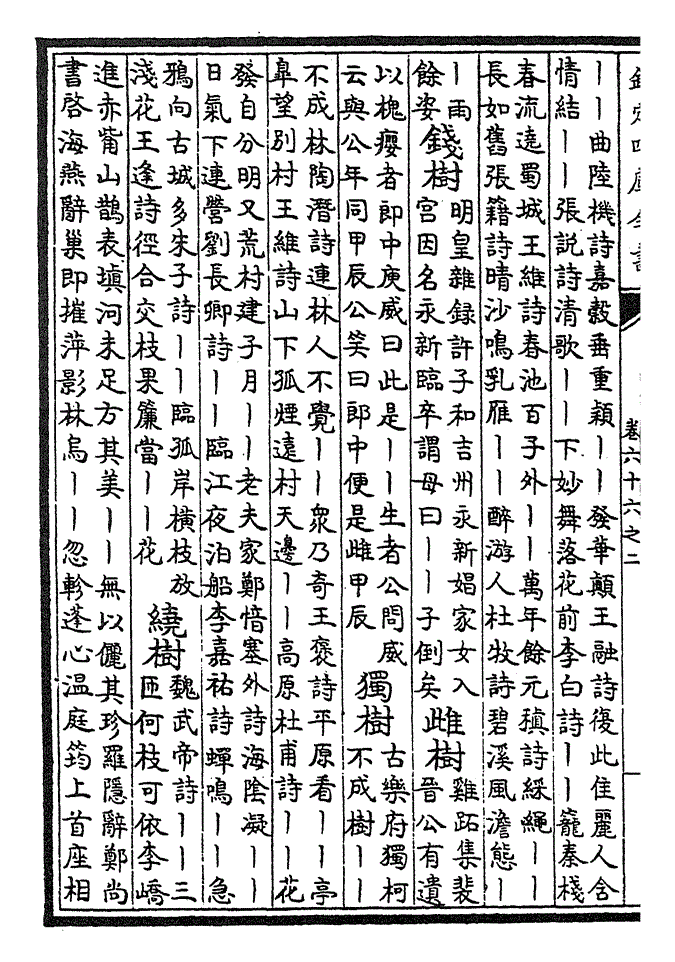 卷六十六之二
丨丨曲陸機詩嘉穀垂重穎丨丨發華顛王融詩復此佳麗人含
情結丨丨張説詩清歌丨丨下妙舞落花前李白詩丨丨籠秦棧
春流遶蜀城王維詩春池百子外丨丨萬年餘元稹詩綵繩丨丨
長如舊張籍詩晴沙鳴乳雁丨丨醉游人杜牧詩碧溪風澹態丨
丨雨
餘姿
錢樹
明皇雜録許子和吉州永新娼家女入
宮因名永新臨卒謂母曰丨丨子倒矣
雌樹
雞跖集裴
晉公有遺
以槐癭者即中庾威曰此是丨丨生者公問威
云與公年同甲辰公笑曰郎中便是雌甲辰
獨樹
古樂府獨柯
不成樹丨丨
不成林陶潛詩連林人不覺丨丨衆乃奇王褒詩平原看丨丨亭
臯望别村王維詩山下孤煙遠村天邊丨丨高原杜甫詩丨丨花
發自分明又荒村建子月丨丨老夫家鄭愔塞外詩海陰凝丨丨
日氣下連營劉長卿詩丨丨臨江夜泊船李嘉祐詩蟬鳴丨丨急
鴉向古城多朱子詩丨丨臨孤岸橫枝放
淺花王逢詩徑合交枝果簾當丨丨花
繞樹
魏武帝詩丨丨三
匝何枝可依李嶠
進赤觜山鵲表填河未足方其美丨丨無以儷其珍羅隱辭鄭尚
書啓海燕辭巢即摧萍影林烏丨丨忽軫蓬心温庭筠上首座相